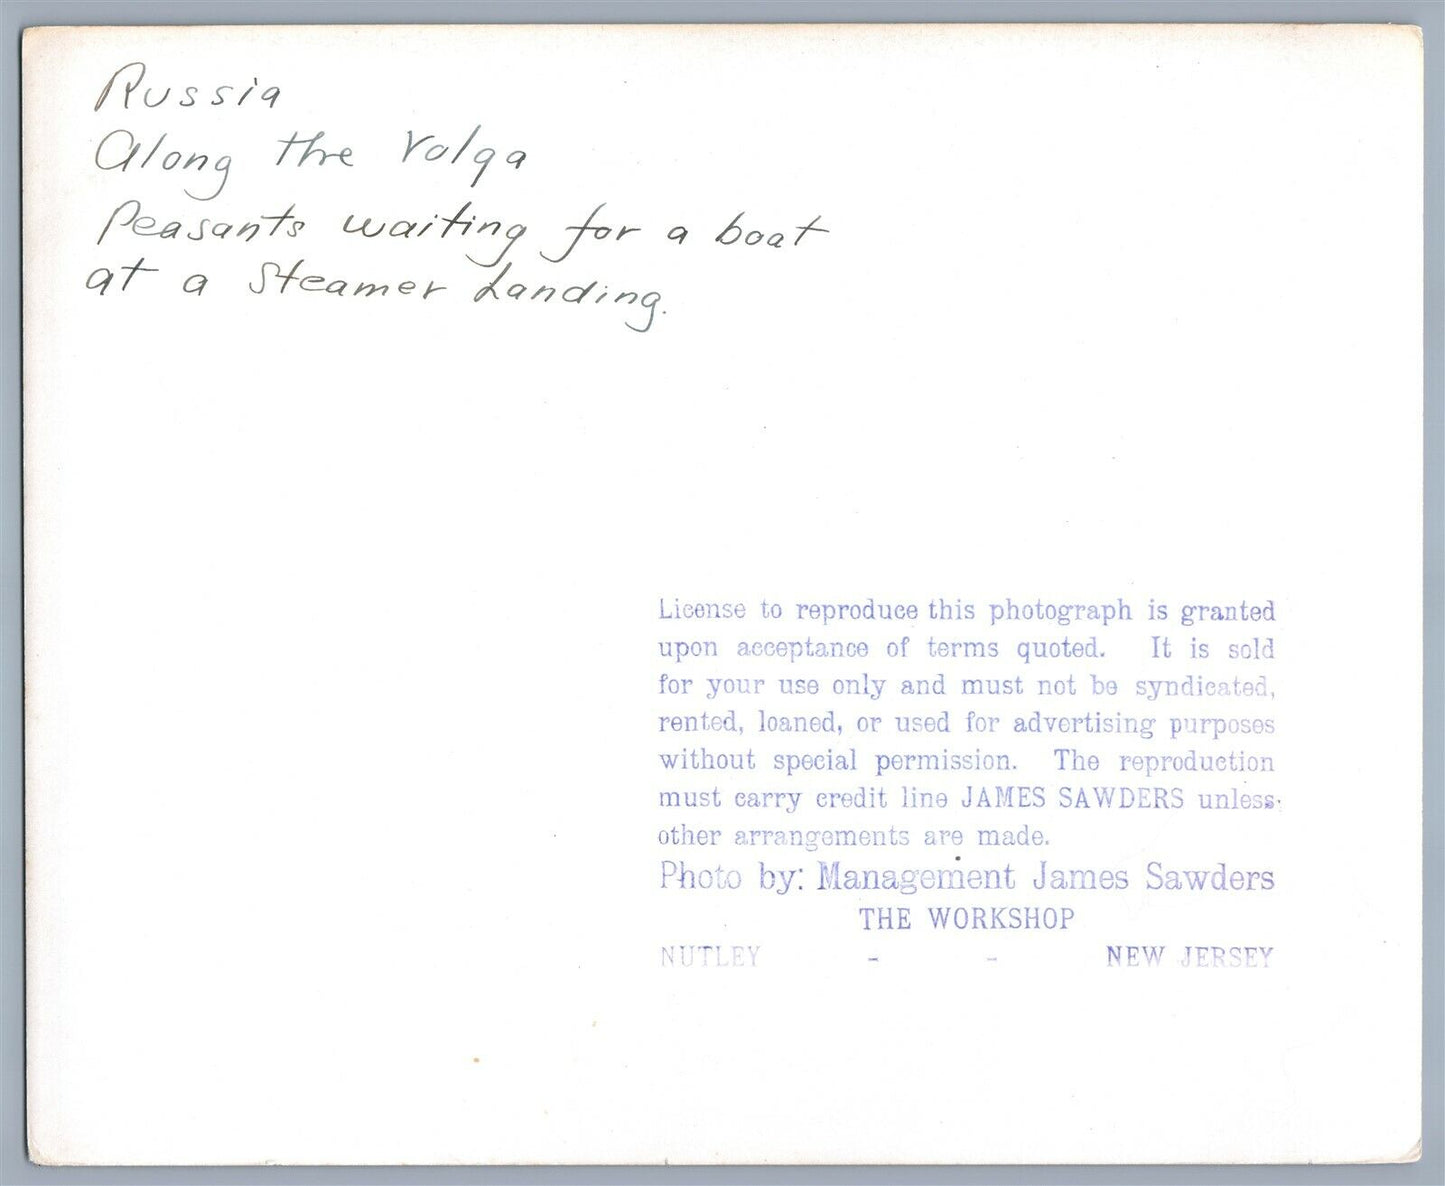 Russia
Along the Volga
Peasants waiting for a boat
at a Steamer Landing.
License to reproduce this photograph is granted
upon acceptance of terms quoted. It is sold
for your use only and must not be syndicated,
rented, loaned, or used for advertising purposes
without special permission. The reproduction
must carry credit line JAMES SAWDERS unless
other arrangements are made.
Photo by: Management James Sawders
THE WORKSHOP
NUTLEY - - NEW JERSEY